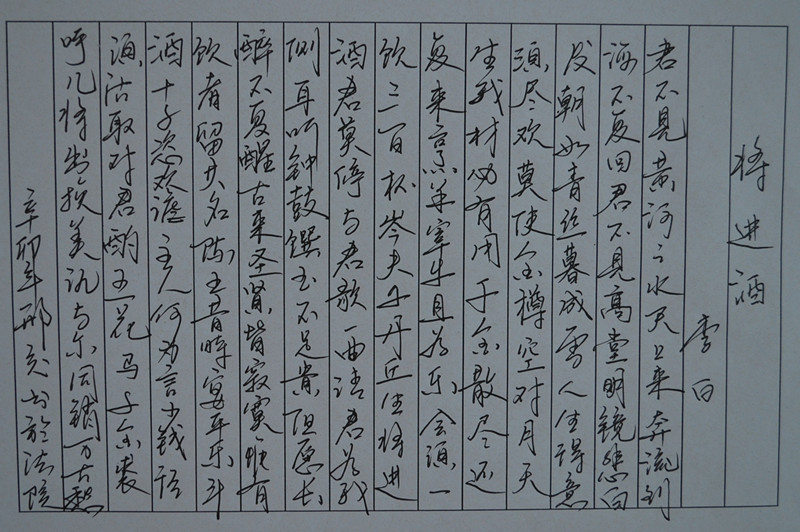 将进酒
李白
君不见黄河之水天上来奔流到
海不复回君不见高堂明镜悲白
发朝如青丝暮成雪人生得意
须尽欢莫使金樽空对月天
生我材必有用千金散尽还
复来烹羊宰牛且为乐会须一
饮三百杯岑夫子丹丘生将进
酒君莫停与君歌一曲请君为我
侧耳听钟鼓馔玉不足贵但愿长
醉不复醒古来圣贤皆寂寞唯有
饮者留其名陈王昔时宴平乐斗
酒十千恣欢谑主人何为言少钱径
须沽取对君酌五花马千金裘
呼儿将出换美酒与尔同销万古愁
辛卯年邢书於法院